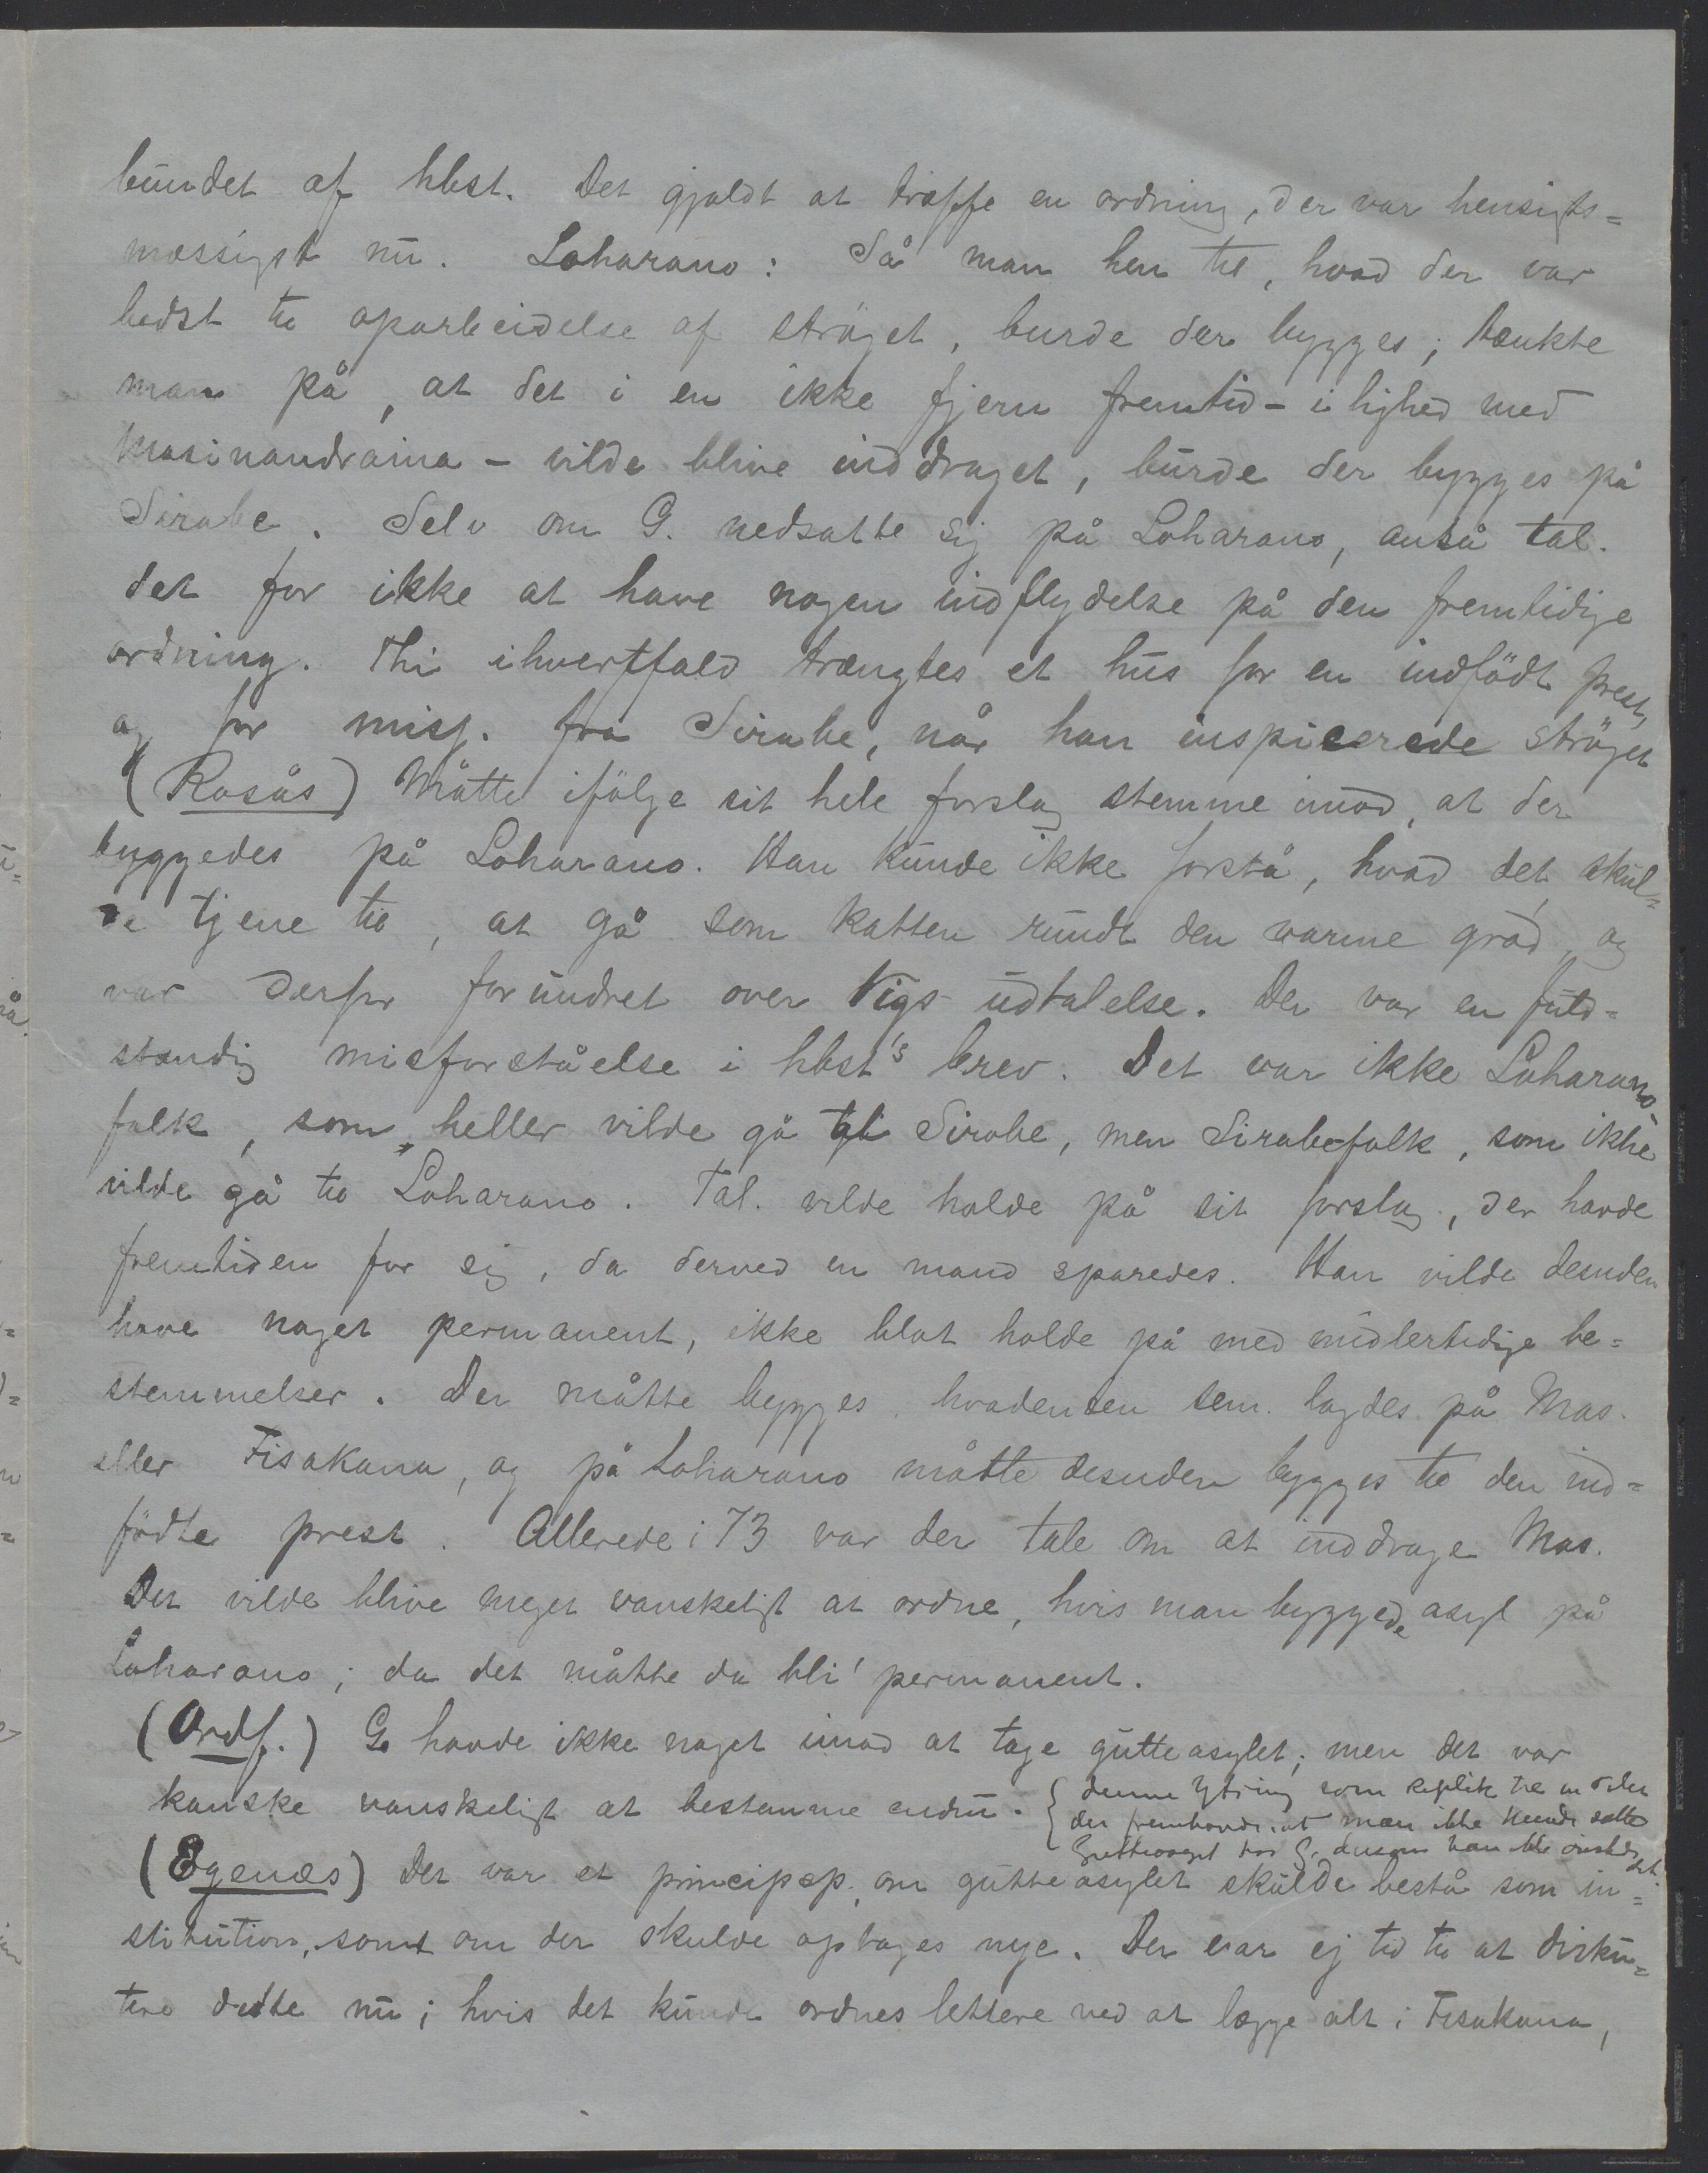 bundet af hbst. Det gjaldt at træffe en ordning, der var hensigts=
mæssigst nu. Loharano: Så man hen til, hvad der var
bedst til oparbeidelse af strøget, burde der bygges; tænkte
man på, at det i en ikke fjern fremtid – i lighed med
Masinandraina – vilde blive inddraget, burde der bygges på
Sirabe. Selv om G. nedsatte sig på Loharano, anså tal.
det for ikke at have nogen indflydelse på den fremtidige
ordning. Thi ihvertfald trængtes et hus for en indfödt prest,
og for miss. fra Sirabe, når han inspicerede ströget
(Rosås) Måtte ifölge sit hele forslag stemme imod, at der
byggedes på Loharano. Han kunde ikke forstå, hvad det skul=
de tjene til, at gå som katten rundt den varme gröd, og
var derfor forundret over Vigs udtalelse. Der var en fuld=
stændig misforståelse i hbst's brev. Det var ikke Loharano-
folk, som heller vilde gå til Sirabe, men Sirabefolk, som ikke
vilde gå til Loharano. Tal. vilde holde på sit forslag, der havde
fremtiden for sig, da derved en mand sparedes. Han vilde desuden
have noget permanent, ikke blot holde på med midlertidige be=
stemmelser. Der måtte bygges hvadenten sem. lagdes på Mas.
eller Fisakana, og på Loharano måtte desuden bygges til den ind=
födte prest. Allerede i 73 var der tale om at inddrage Mas.
Det vilde blive meget vanskeligt at ordne, hvis man byggede asyl på
Loharano; da det måtte da bli' permanent.
(Ordf.) G. havde ikke noget imod at tage gutteasylet; men det var
kanske vanskeligt at bestemme endnu. { denne ytring som replik til
der fremhovde: at man ikke kunde sætte
Gutteasyl hos G. dersom han ikke önskede det.
(Egenæs) Det var et principsp. om gutteasylet skulde bestå som in=
stitution, samt om der skulde optages nye. Der var ej tid til at disku=
tere dette nu; hvis det kunde ordnes lettere ved at lægge alt i Fisakana,